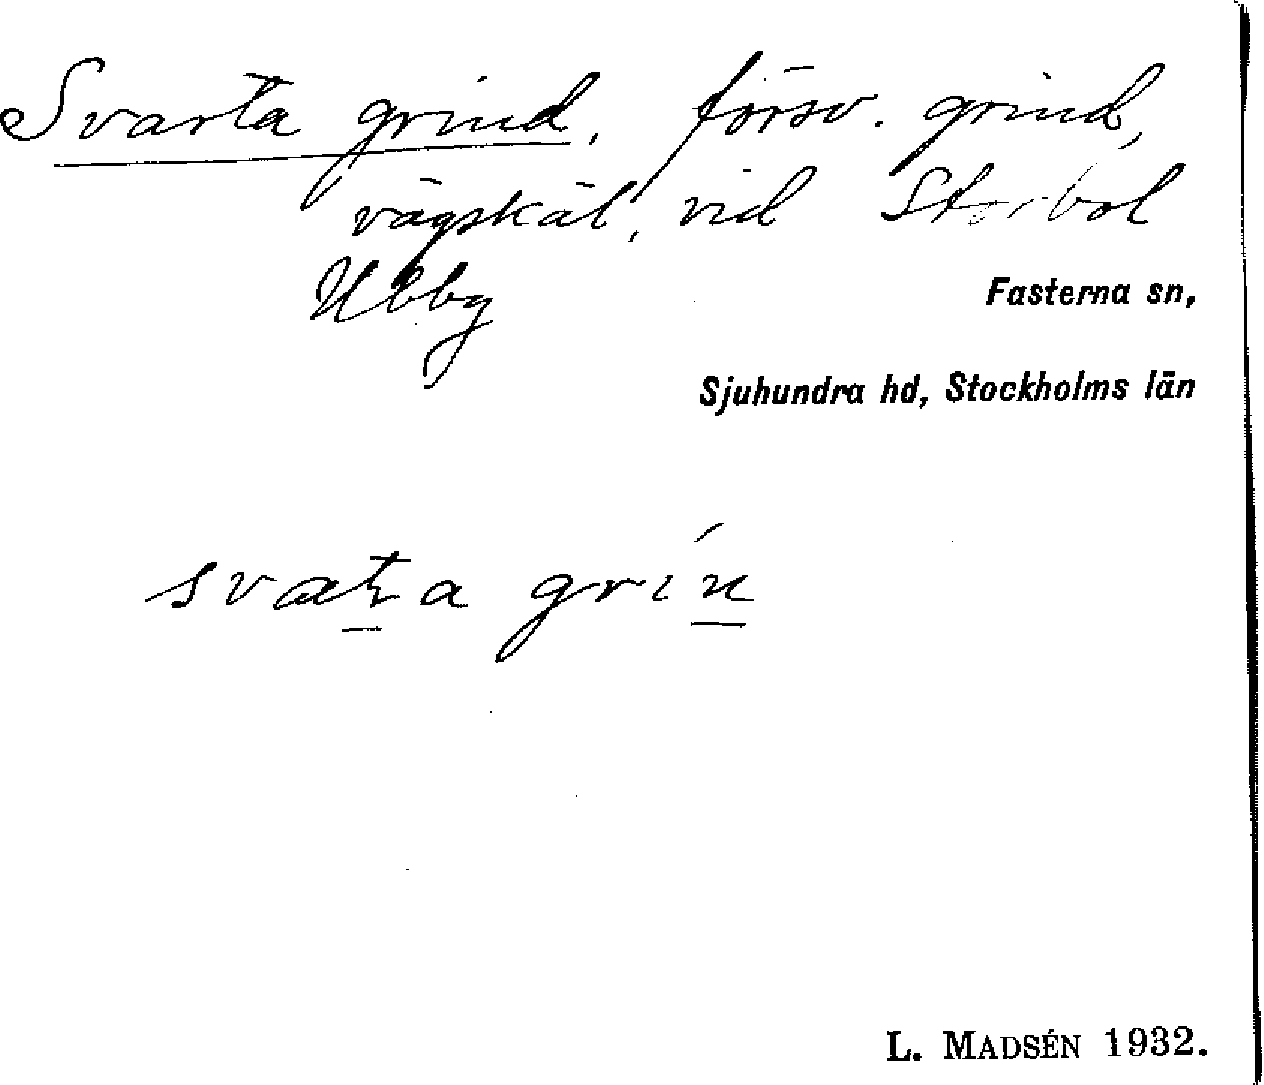 Svarta grind, försv. grind,
vägskäl, vid Storbol
Ubby
Fasterna sn,
Sjuhundra hd, Stockholms län
svaʈa grín
L. MADSÉN 1932.